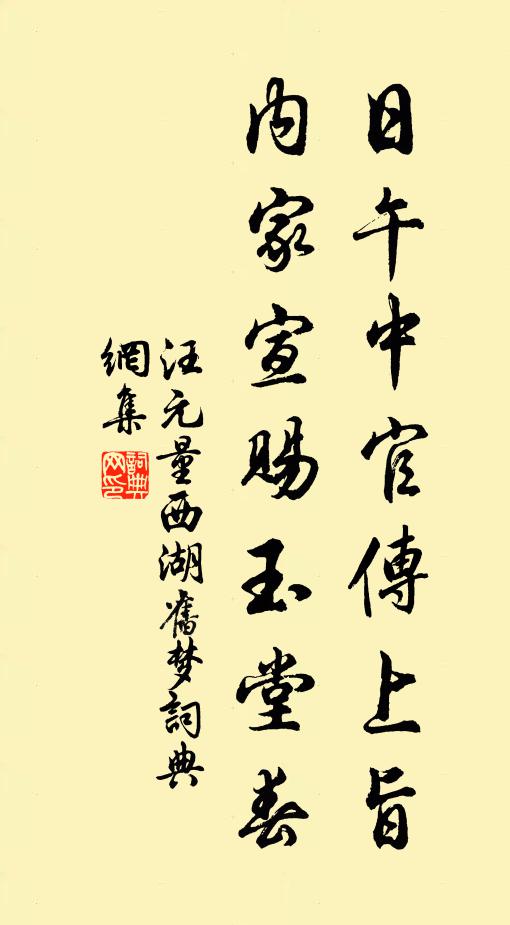 日午中官傳上旨
內家宣賜玉堂春
汪元量西湖舊梦詞典
網集
詞典網印